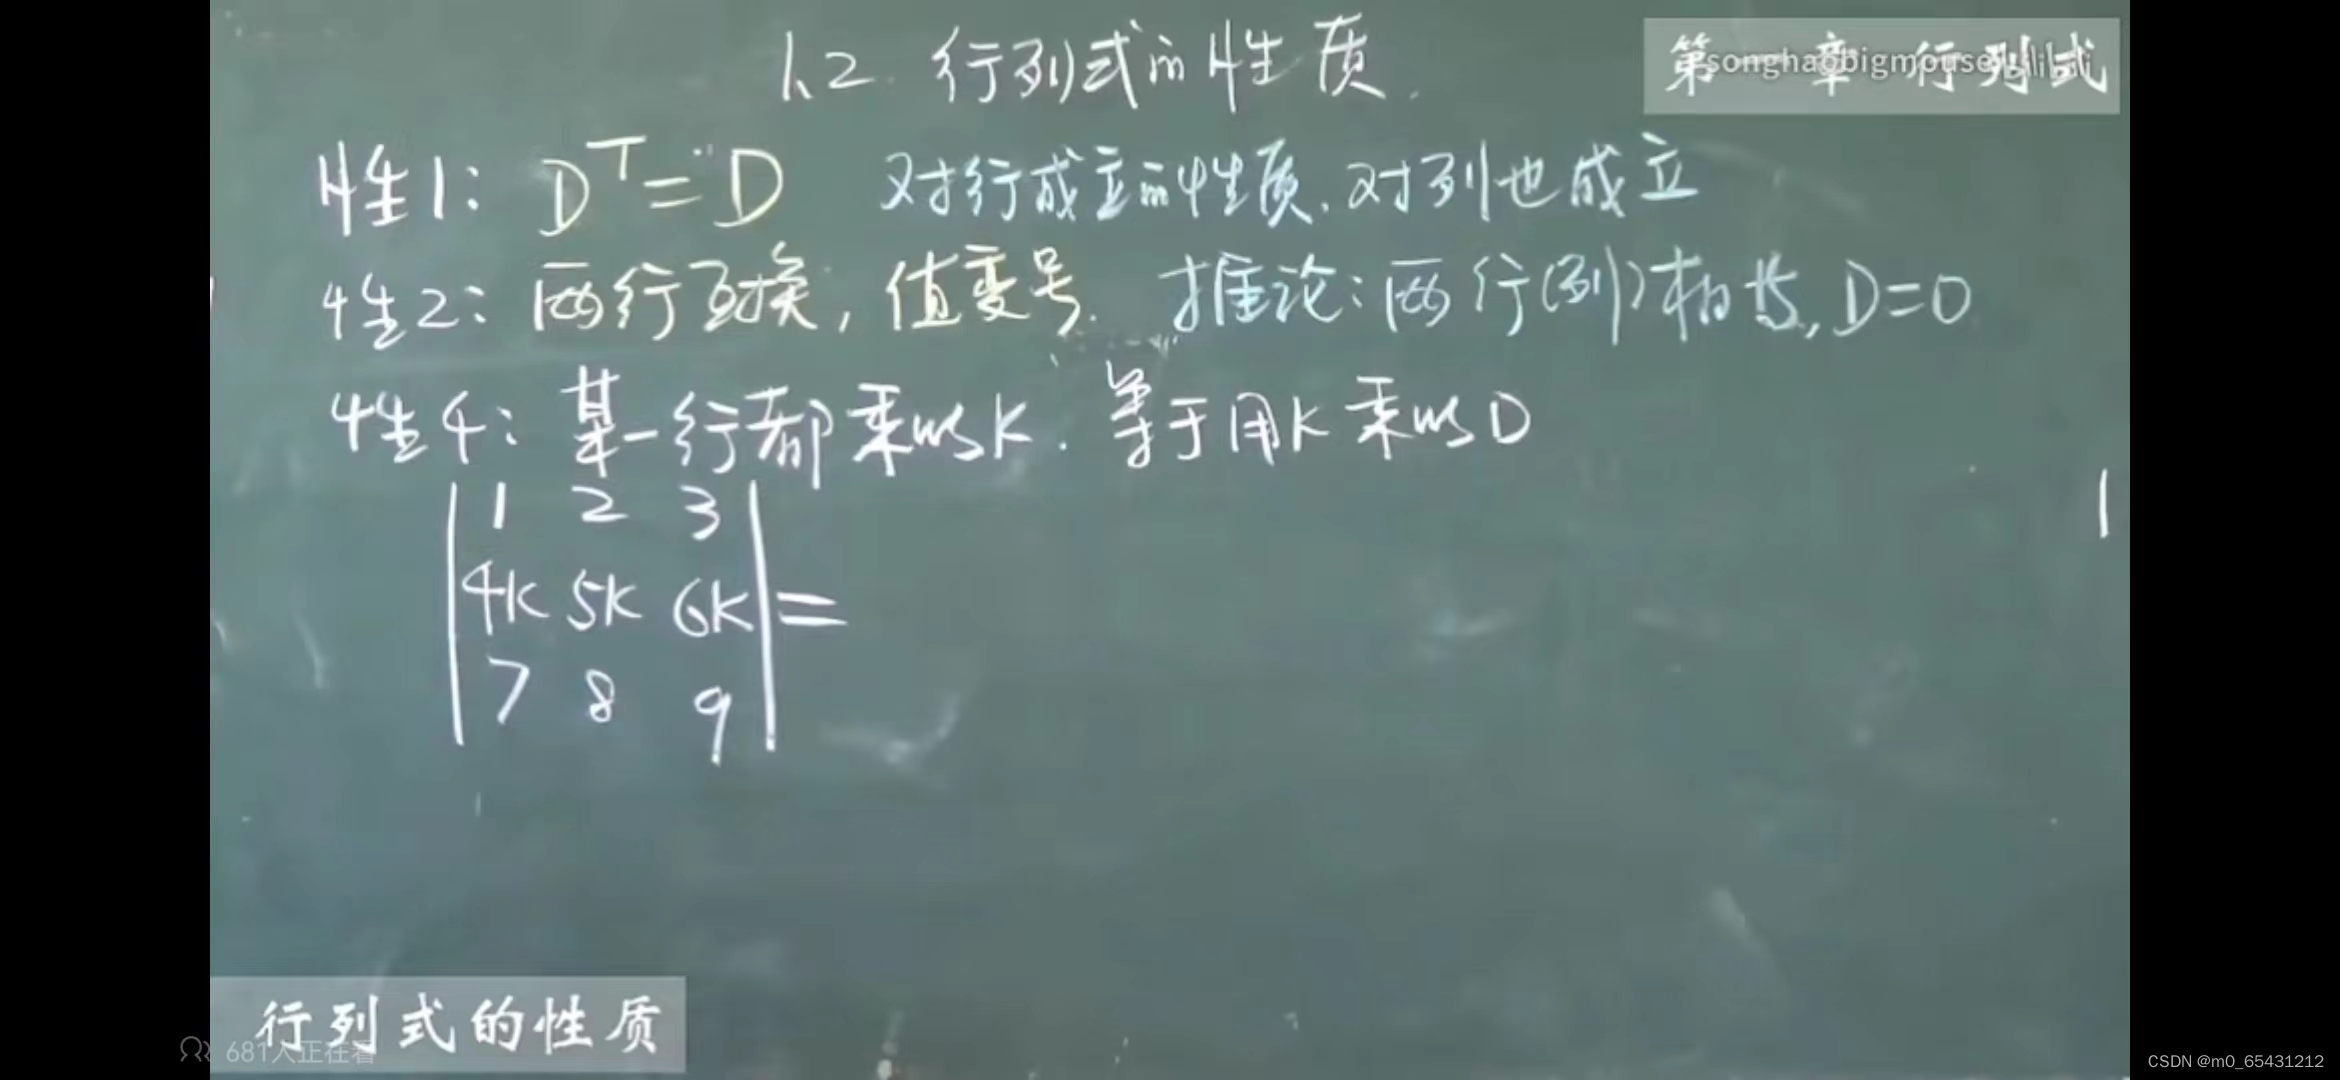 1.2 行列式的性质.
第一章 行列式
songhaobigmouse bilibili
性1: D^T=D 对行成立的性质.对列也成立
性2: 两行互换,值变号. 推论:两行(列)相等,D=0
性4: 某一行都乘以K. 等于用K乘以D
1 2 3
4K 5K 6K =
7 8 9
行列式的性质
681人正在看
CSDN @m0_65431212